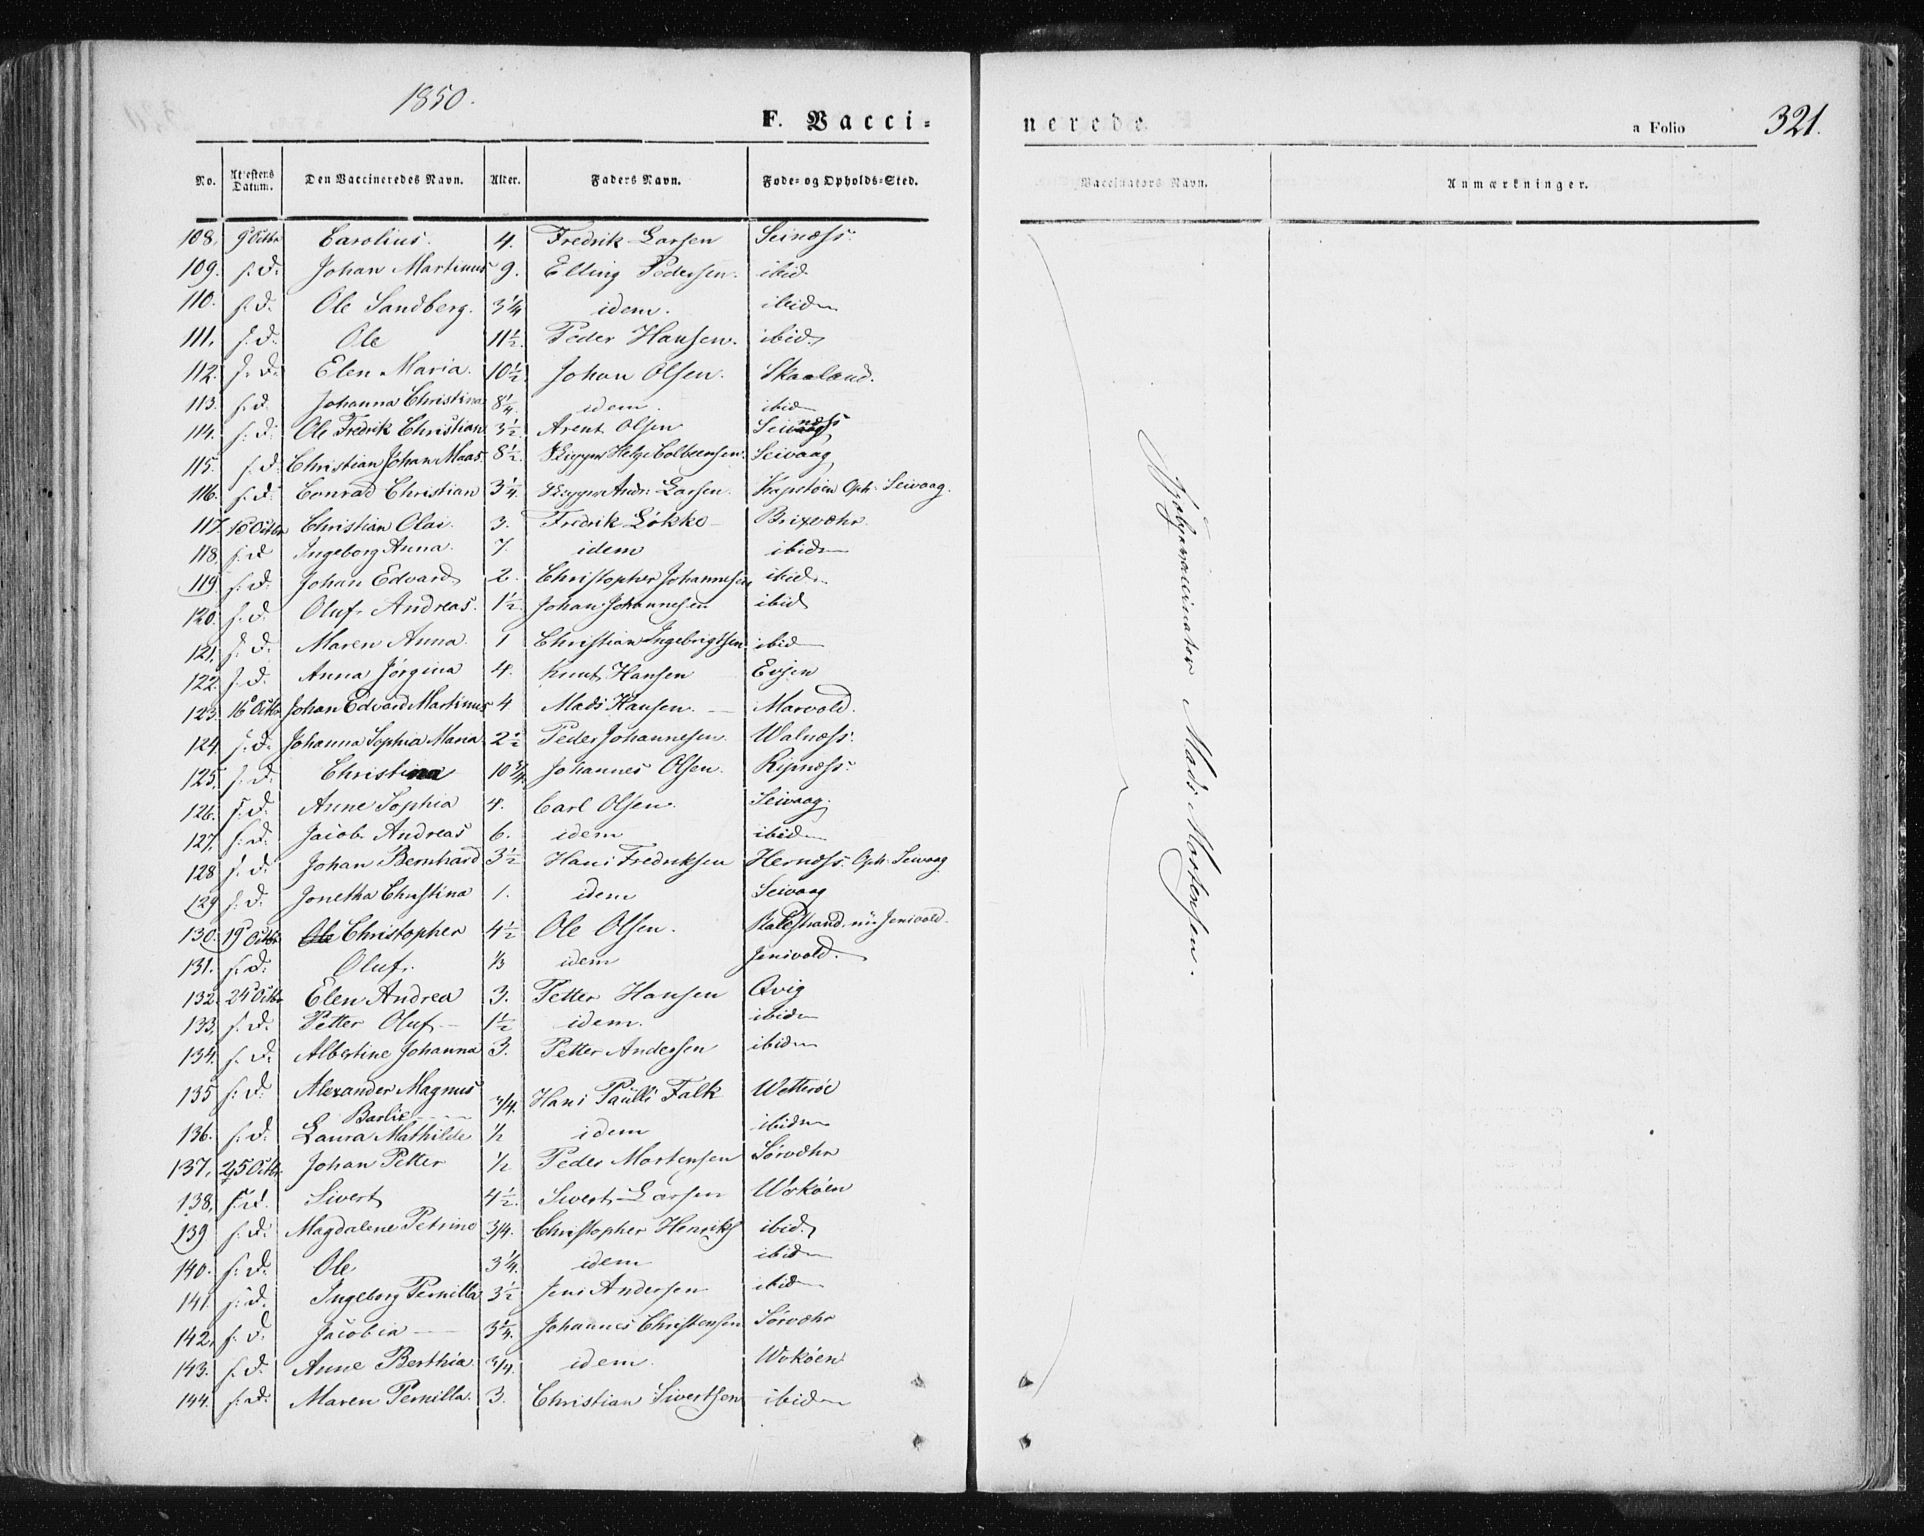 1850.
F. Vacci=
nerede.
a Folio
321.
No. Attestens Datum. Den Vaccineredes Navn. Alter. Faders Navn. Føde- og Opholds-Sted.
Vaccinators Navn. Anmærkninger.
108. 9 Octbr Carolius. 4. Fredrik Larsen Seinæss.
109. s. D. Johan Martinus 9. Elling Pedersen. ibid
110. s. D. Ole Sandberg. 3¼ idem. ibidm
111. s. D. Ole 11½. Peder Hansen. ibid
112. s. D. Elen Maria. 10½. Johan Olsen. Skaaland.
113. s. D. Johanna Christina 8¼. idem. ibidm
114. s. D. Ole Fredrik Christian 3½. Arent Olsen Seinæss
115. s. D. Christian Johan Maas 8½. Skipper Helge Colbeensen. Seivaag
116. s. D. Conrad Christian 3¼. Skipper Andr. Larsen. Oph. Seivaag.
117. 16 Octbr Christian Olai. 3. Fredrik Løkke Brixvæhr.
118. s. D Ingeborg Anna. 7. idem ibidm
119. s. D. Johan Edvard 2. Christopher Johannesen ibidm
120. s. D. Oluf Andreas. 1½. Johan Johannesen ibid
121. s. D. Maren Anna. 1 Christian Ingebrigtsen ibidm
122. s. D. Anna Jørgina 4. Knut Hansen Evjen
123. 16 Octbr Johan Edvard Martinus 4 Mads Hansen. Marvold.
124. s. D. Johanna Sophia Maria 2½ Peder Johannesen. Walnæss.
125. s. D. Christina 10¾. Johannes Olsen. Ripnæss.
126. s. D. Anne Sophia 4. Carl Olsen. Seivaag.
127. s. D. Jacob Andreas 6. idem ibidm
128 s. D. Johan Bernhard 3½ Hans Fredriksen Hernæss. Oph. Seivaag
129 s. D. Jonetha Christina 1. idem Seivaag
130. 19 Octbr. Ole Christopher 4½ Ole Olsen. nu Jenivold.
131. s. D. Oluf. ⅓ idem Jenivold.
132. 24 Octbr Elen Andrea 3. Petter Hansen Qvig
133. s. D. Petter Oluf 1½ idem. ibidm
134. s. D. Albertine Johanna 3. Petter Andersen ibidm
135 s. D. Alexander Magnus ¾. Hans Paulli Falk Wetterøe
Barlie
136. s. D. Laura Mathilde ½ idem ibidm
137. 25 Octbr. Johan Petter ½ Peder Mortensen Sørvæhr
138. s. D. Sivert 4½. Sivert Larsen Wokøen
139 s. D. Magdalene Petrine ¾. Christopher Henriks ibid.
140. s. D. Ole 3¼. idem ibidm
141. s. D. Ingeborg Pernilla 3½ Jens Andersen ibidm
142. s. D. Jacobia 3¼. Johannes Christensen Sørvæhr
143. s. D. Anne Berthia ¾. idem. Wokøen
144. s. D. Maren Pernilla. 3. Christian Sivertsen ibidm
Hjelpevaccinateur Mads Mortensen.